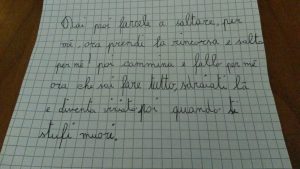 Dai puoi farcela a saltare, per
me, ora prendi la rincorsa e salta
per me! poi cammina e fallo per me
ora che sai fare tutto, sdraiati là
e diventa viziato poi quando ti
stufi muori.